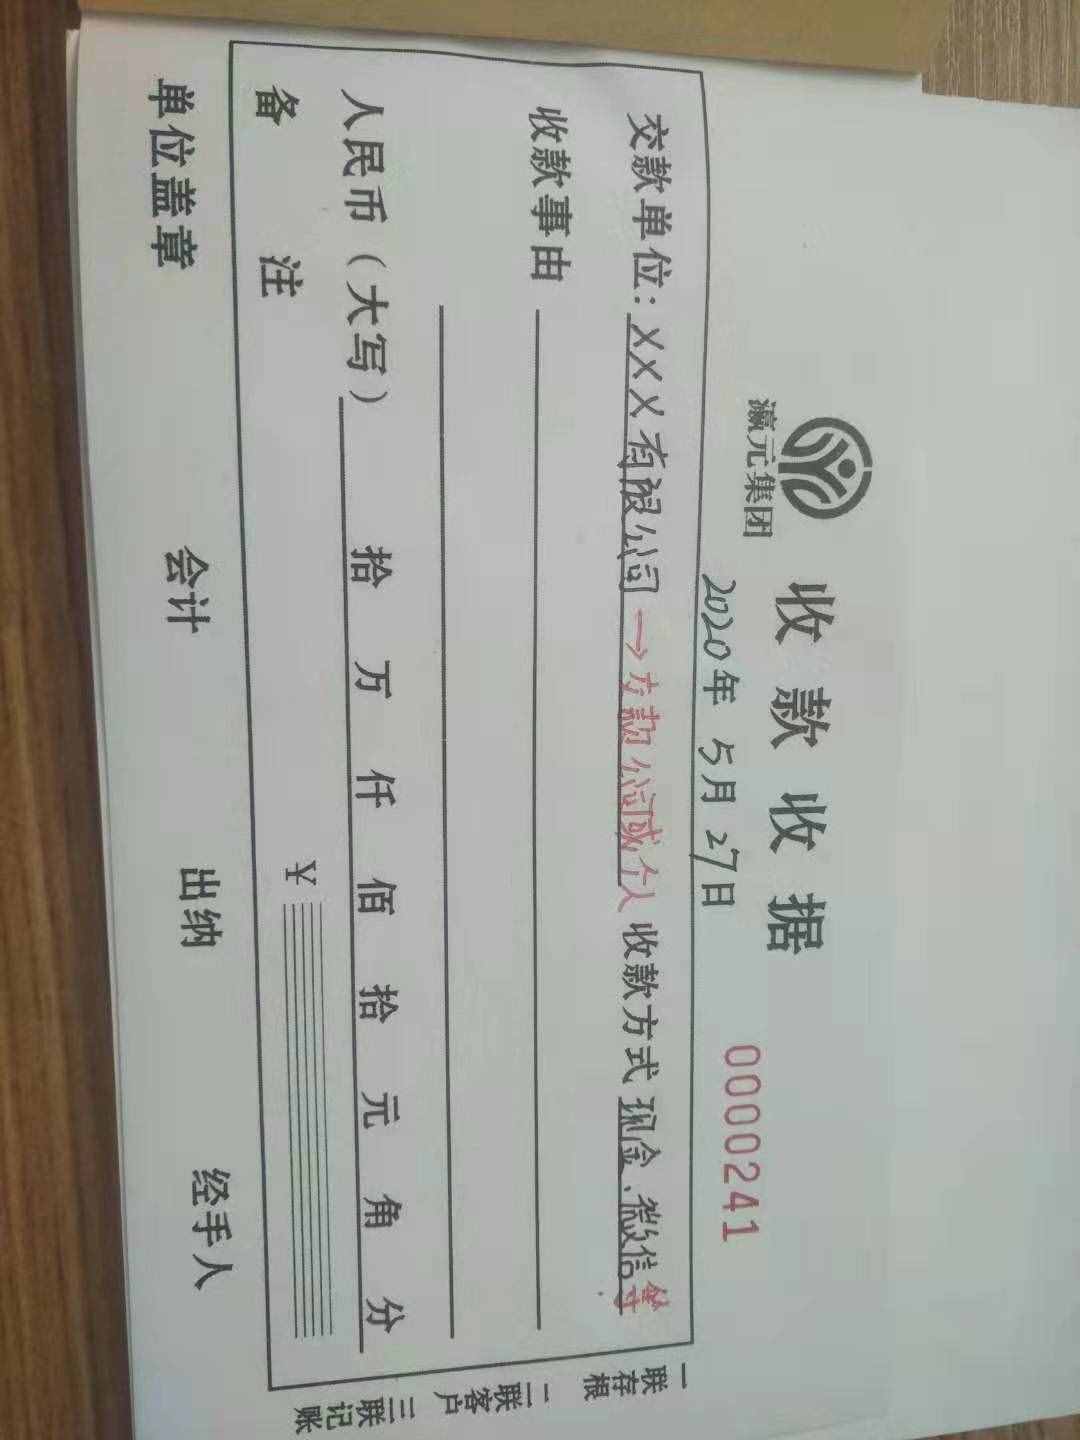 瀛元集团
收款收据
0000241
2020年5月27日
交款单位：XXX有限公司→方款公司或个人 收款方式 现金、微信等
收款事由
人民币（大写） 拾 万 仟 佰 拾 元 角 分
备 注 ￥
单位盖章 会计 出纳 经手人
一联存根 二联客户 三联记账